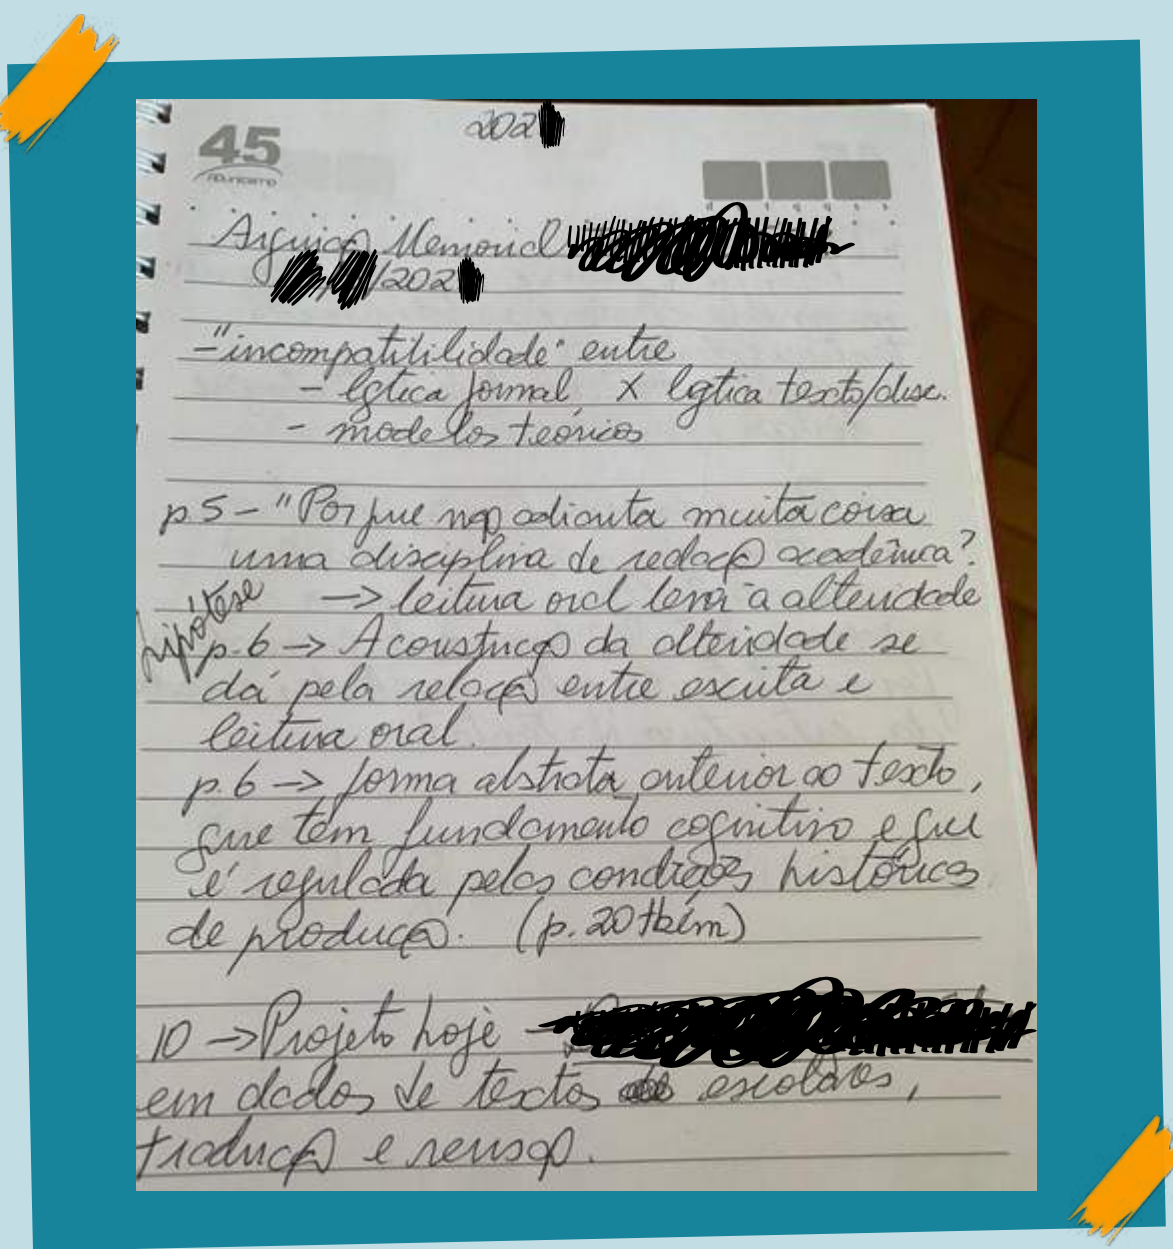 202
45
ADunicamp
d s t q q s s
Arguição Memorial
/202
- "incompatibilidade" entre
- lógica formal X lógica texto/disc.
- modelos teóricos
p 5 - "Por que não adianta muita coisa
uma disciplina de redação acadêmica?
hipótese
→ leitura oral leva à alteridade
p. 6 → A construção da alteridade se
dá pela relação entre escrita e
leitura oral.
p. 6 → forma abstrata anterior ao texto,
que tem fundamento cognitivo e que
é regulada pelas condições históricas
de produção. (p. 20 tbém)
10 → Projeto hoje →
em dados de textos escolares,
tradução e revisão.